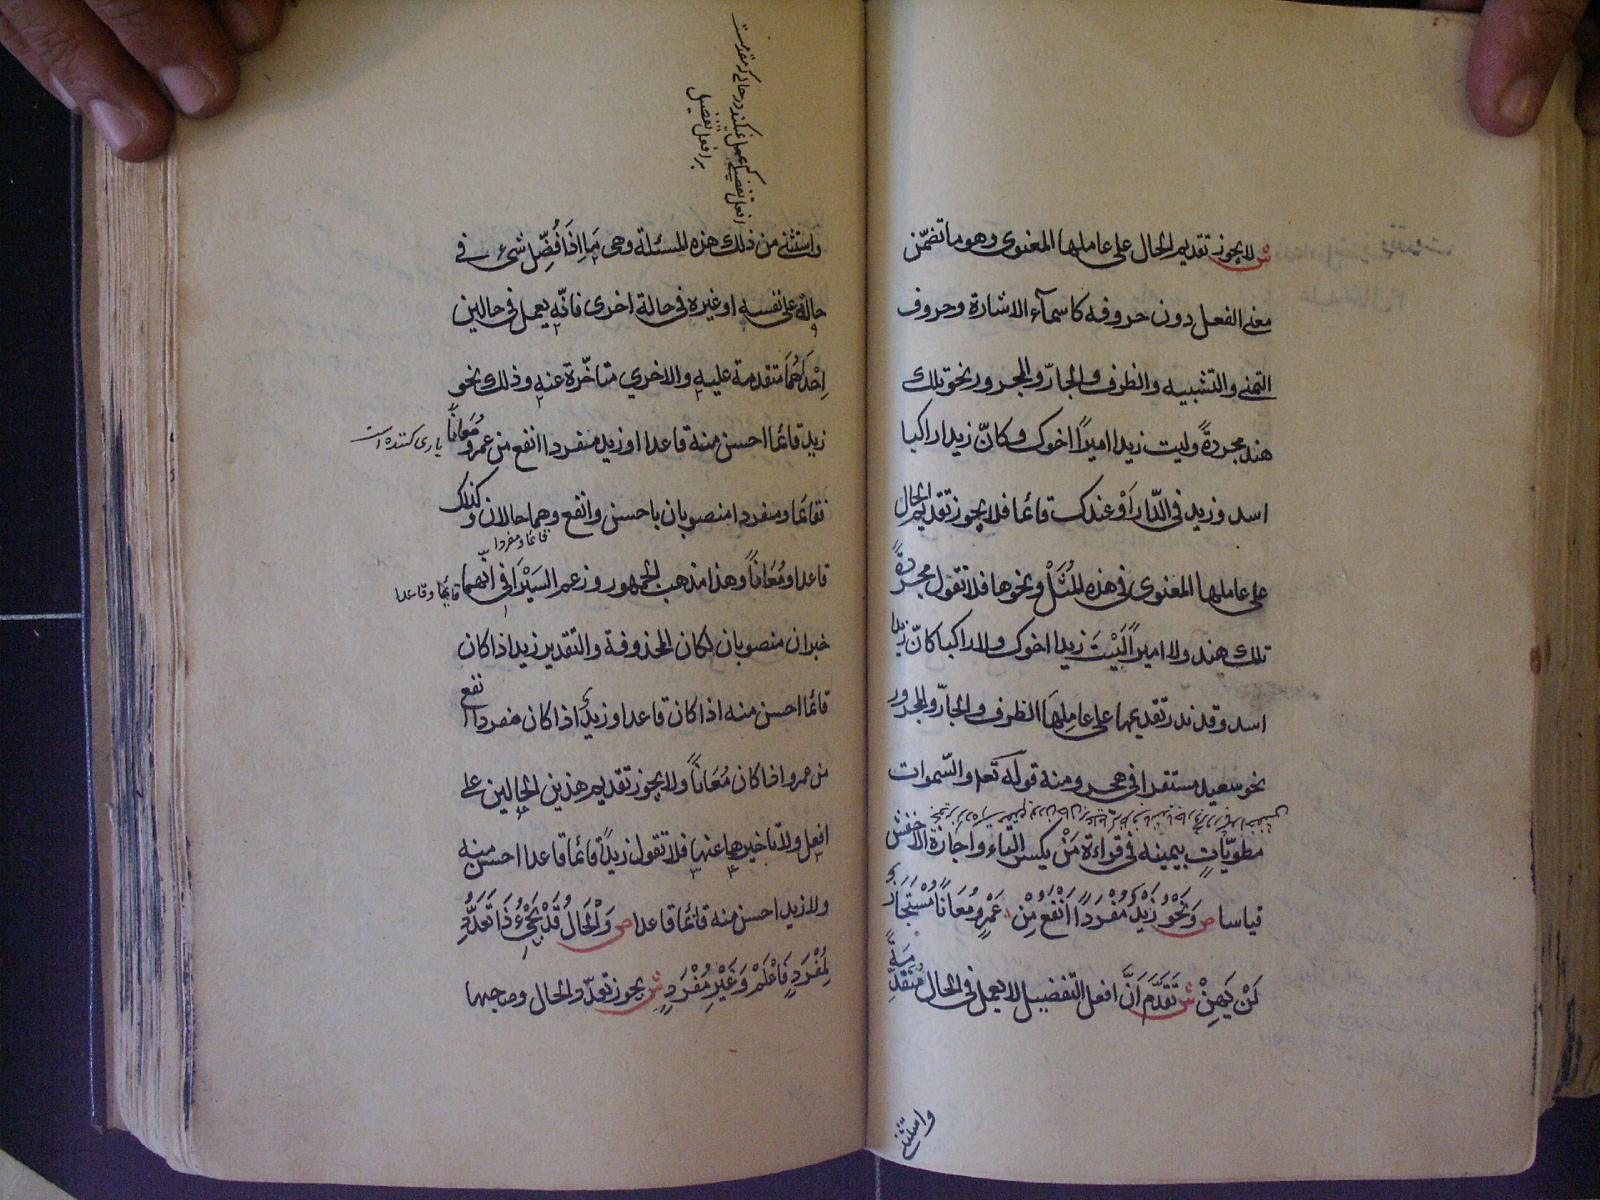 ش لا يجوز تقديم الحال على عاملها المعنوى وهو ما تضمّن
معنى الفعل دون حروفه كاسمآء الاشارة وحروف
التمنى والتشبيه والظرف والجارّ والمجرور نحو تلك
هند مجردةً وليت زيدا اميرًا اخوك وكانّ زيدا راكبا
اسد وزيد فى الدّار اَوْ عندك قائما فلا يجوز تقديم الحال
على عاملها المعنوى فى هذه المُثُلْ ونحوها فلا تقول مجردةً
تلك هند ولا اميرًا لَيْتَ زيدا اخوك ولا راكبا كانّ زيدا
اسد وقد ندر تقديمها على عامِلِهَا الظرف والجارّ والمجرور
نحو سعيد مستقرا فى هجر ومنه قوله تعه والسّموات
مطويّاتٍ بيمينه فى قراءة مَنْ يكسر التّاء واجازه الاخفش
قياسا ص وَنَحْوُ زَيْدٌ مُفْرَدًا اَنْفَعُ مِنْ عَمْرٍو مُعَانًا مُسْتَجَازٌ
لَنْ يَهِنْ ش تَقَدَّمَ اَنَّ افعل التفضيل لا يعمل فى الحال متقدّمةً
واستثنى
افعل تفضيل عمل نميكند در حالى كه مقدمست
بر افعل تفضيل
واستثنى من ذلك هذه المسئلة وهى مَا اِذَا فُضِّل شىء فى
حالة على نفسه او غيره فى حالة اخرى فانّه يعمل فى حالين
اِحْدَاهُمَا متقدمة عليه والاخرى متاخّرة عنه وذلك نحو
زيد قائما احسن منه قاعدا او زيد منفردا انفع من عمرو مُعَانًا
يارى كننده است
فقائما ومفردا منصوبان باحسن وانفع وهما حالان وكذلك
قاعدا ومُعَانًا وهذا مذهب الجمهور وزعم السَيْرَافى انّهما
قائما ومفردا
قائما وقاعدا
خبران منصوبان لكان المحذوفة والتقدير زيد اذا كان
قائما احسن منه اذا كان قاعدا وزيد اذا كان مفردا انفع
من عمرو اذا كان مُعَانًا ولا يجوز تقديم هذين الحالين على
افعل ولا تاخيرهما عنها فلا تقول زيدٌ قائما قاعدا احسن منه
ولا زيد احسن منه قائما قاعدا ص وَالْحَالُ قَدْ يَجِىْءُ ذَا تَعَدُّدِ
لِمُفْرَدٍ فَاعْلَمْ وَغَيْرِ مُفْرَدِ ش يجوز تعدّد الحال وصاحبها